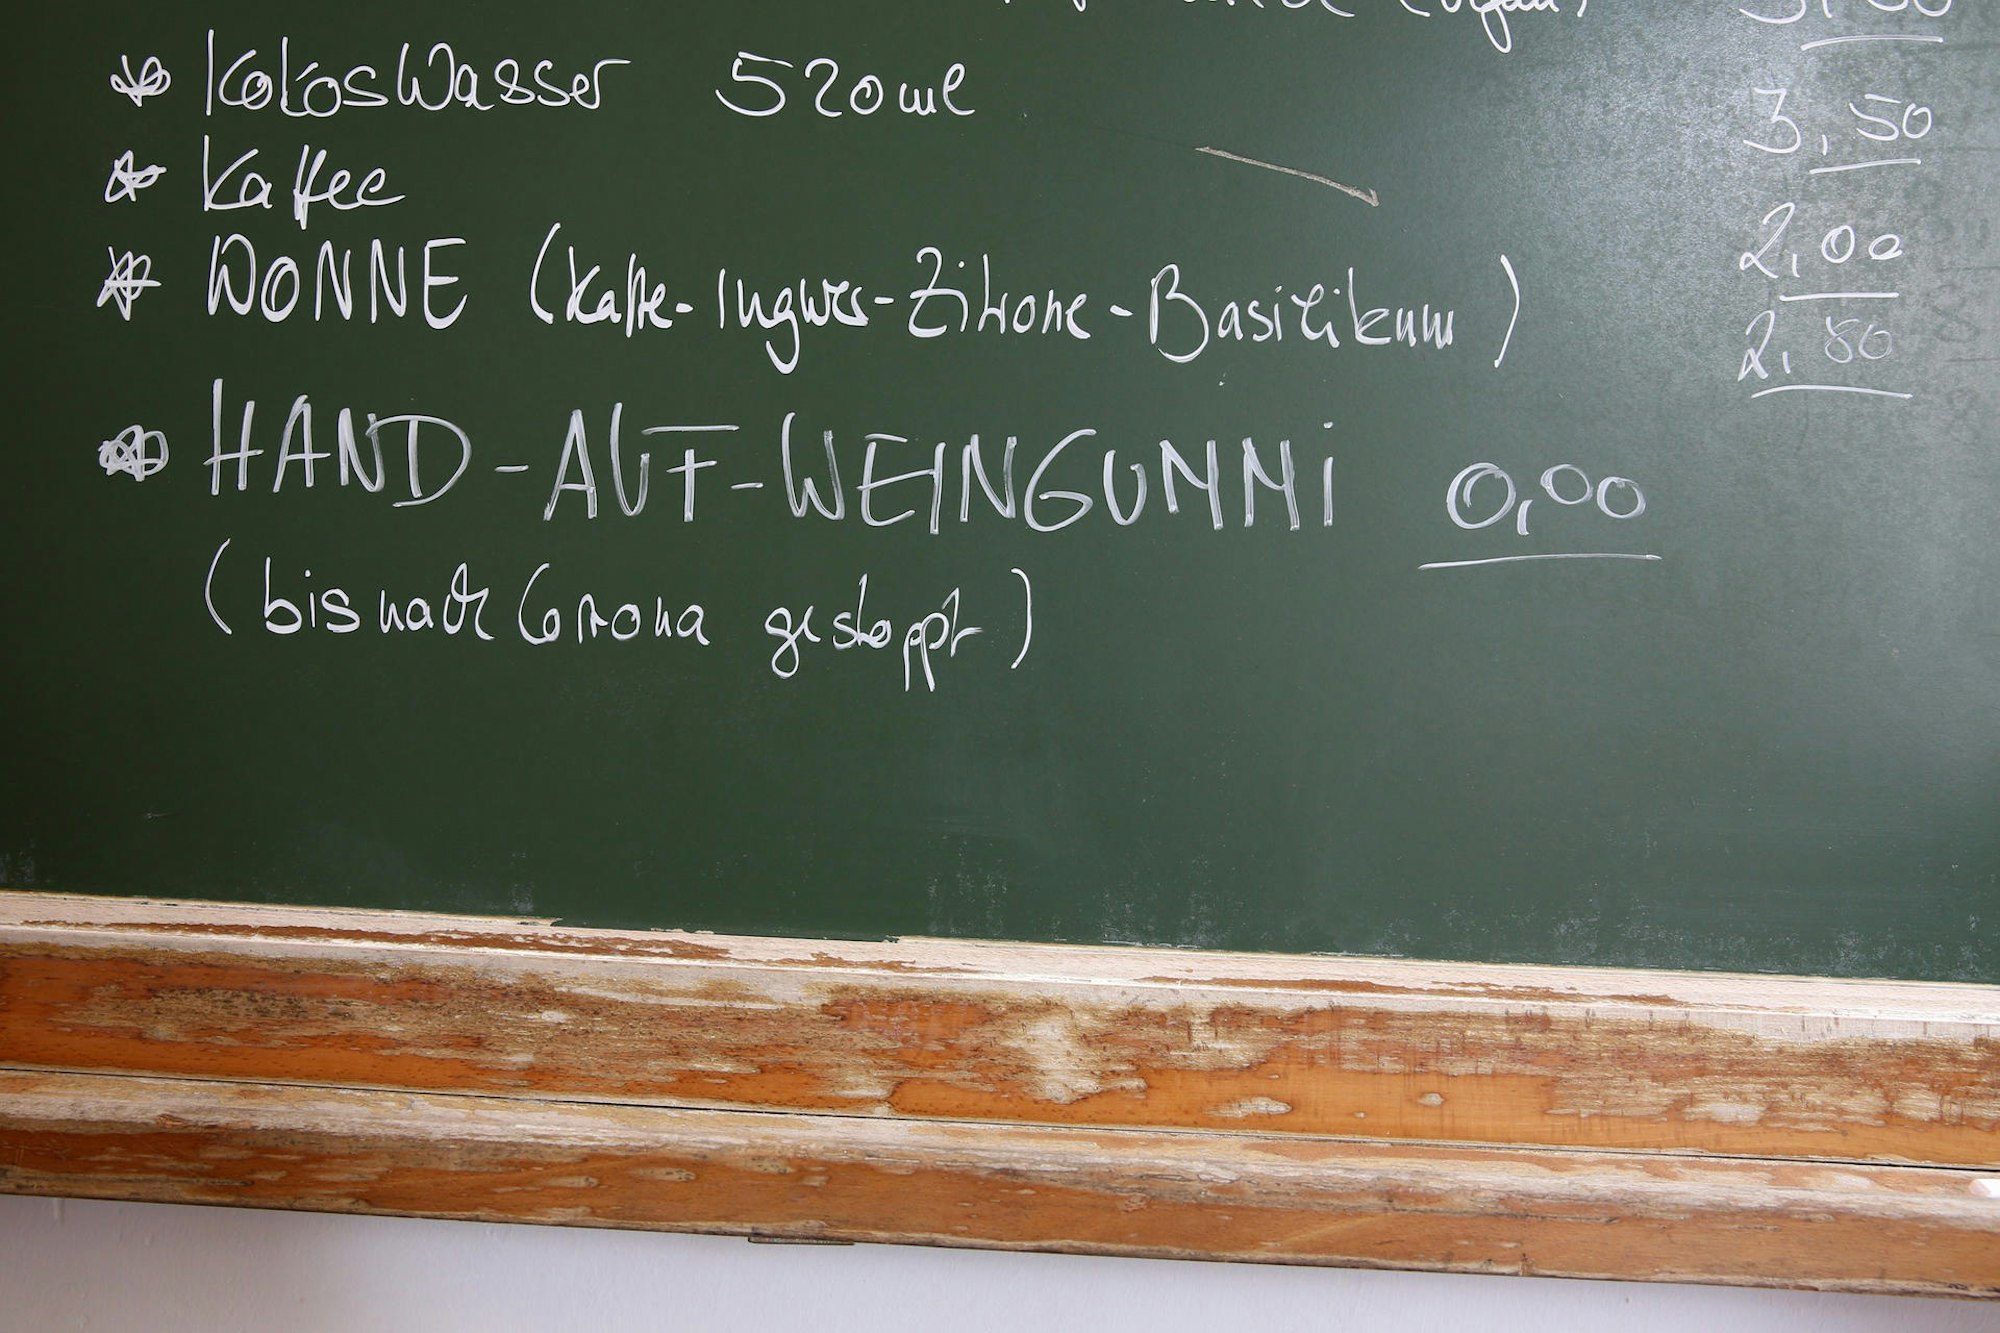 (vegan)
* KokosWasser 520ml 3,50
* Kaffee 2,00
* WONNE (Kaffee-Ingwer-Zitrone-Basilikum) 2,80
* HAND-AUF-WEINGUMMi 0,00
(bis nach Corona gestoppt)